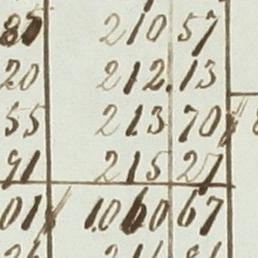 85 210 57
20 212.13
55 213 70
91 215 27
01 1060 67